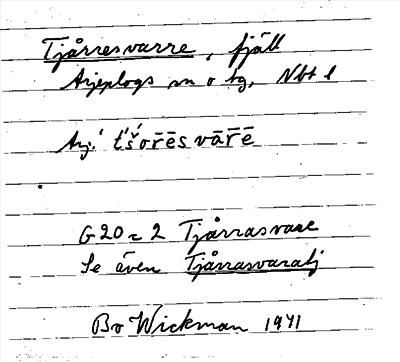 Tjårresvarre, fjäll
Arjeplogs sn o tg, Nbt l
Arj.: t'š́orēsvārē
G 20 = 2 Tjårrasvare
Se även Tjårrasvaratj
Bo Wickman 1941